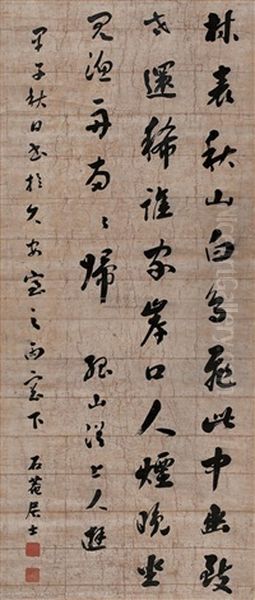 林表秋山白鳥飛此中幽致
世還稀誰家岸口人煙晚坐
見漁舟兩〻歸 孤山從上人遊
甲子秋日書於久安室之西窗下 石菴居士